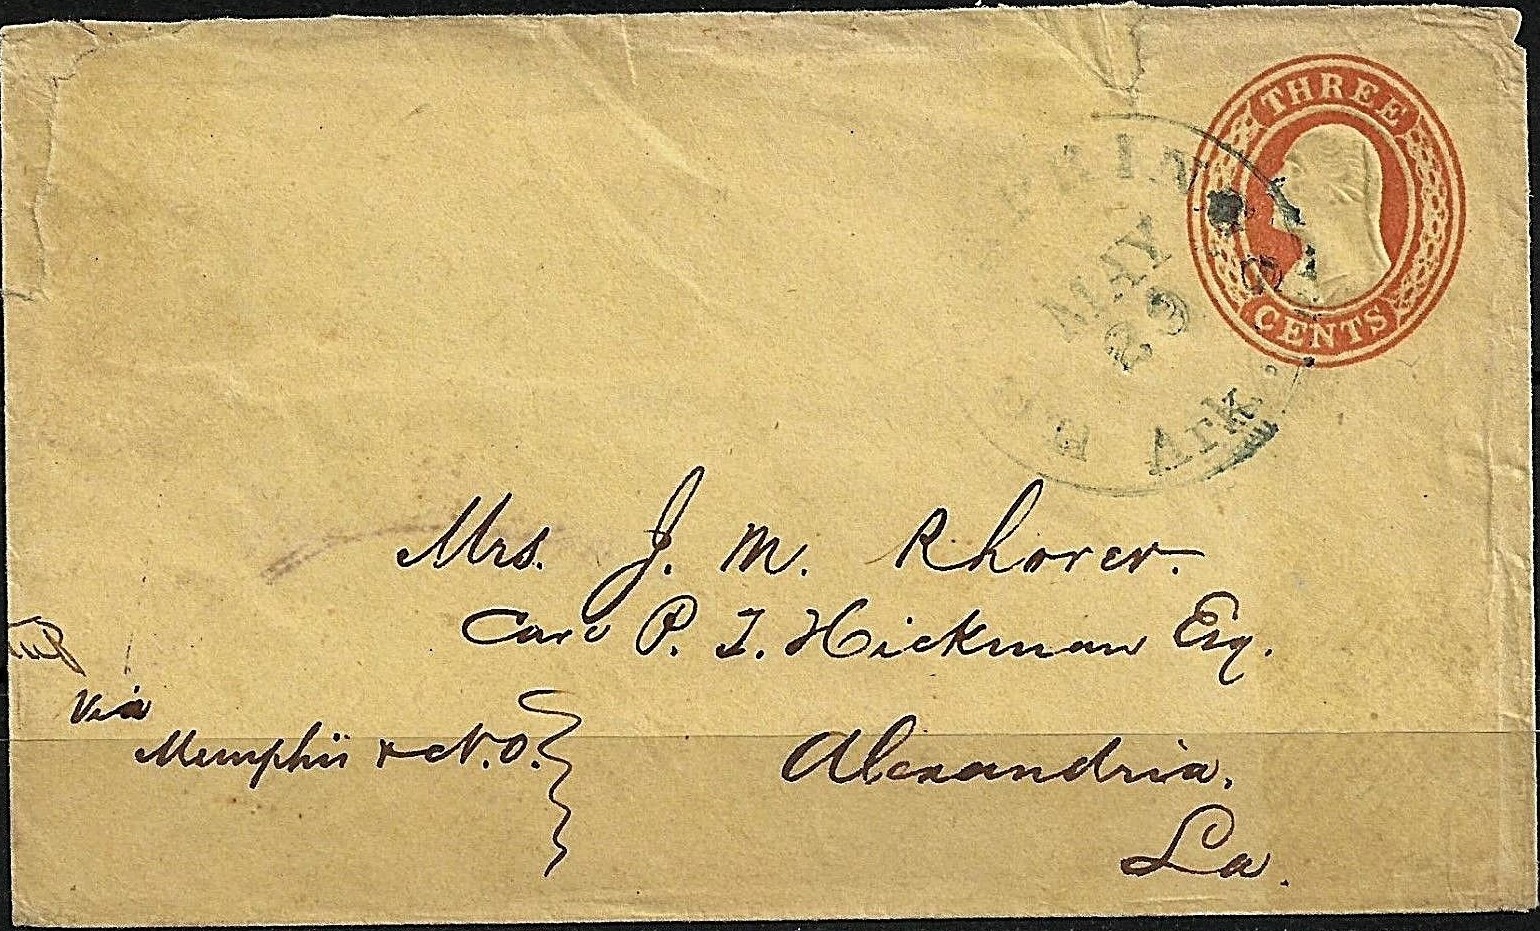 THREE
CENTS
MAY
29
Ark.
Mrs. J. M. Rhorer.
Care P. T. Hickman Esq.
Via
Memphis & N.O.
Alexandria.
La.